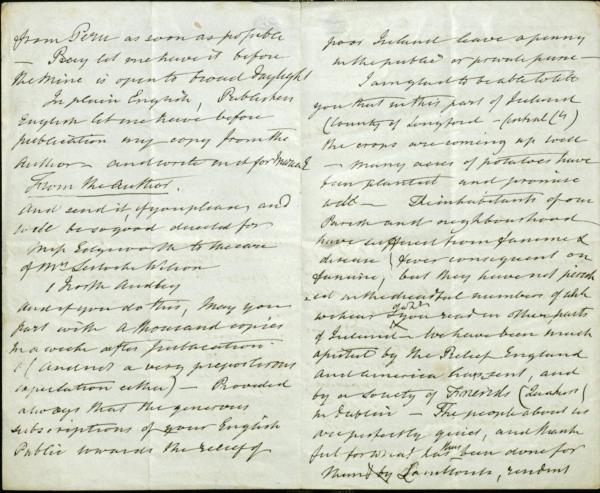 from Peru as soon as possible
— Pray let me have it before
the mine is open to broad daylight
In plain English, Publishers
English let me have before
publication my copy from the
Author — and write in it for Maria E
From the Author.
And send it, if you please, and
will be so good directed for
Miss Edgeworth to the care
of Mrs Lestock Wilson
1 North Audley
And if you do this, May you
part with a thousand copies
in a week after publication
(And not a very preposterous
expectation either) — Provided
always that the generous
subscriptions of your English
Public towards the relief of
poor Ireland leave a penny
in the public or private purse —
I am glad to be able to tell
you that in this part of Ireland
(County of Longford —
the crops are coming up well
— Many acres of potatoes have
been planted and promise
well — The inhabitants of our
Parish and neighbourhood
have suffered from famine &
disease (fever consequent on
famine, but they have not perish
ed in the dreadful numbers of which
we hear & you read in other parts
of Ireland — We have been much
assisted by the Relief England
and America has sent, and
by a Society of Friends (Quakers)
in Dublin — The people about us
are perfectly quiet, and thank
ful for what has thus been done for
them by Landlords, resident